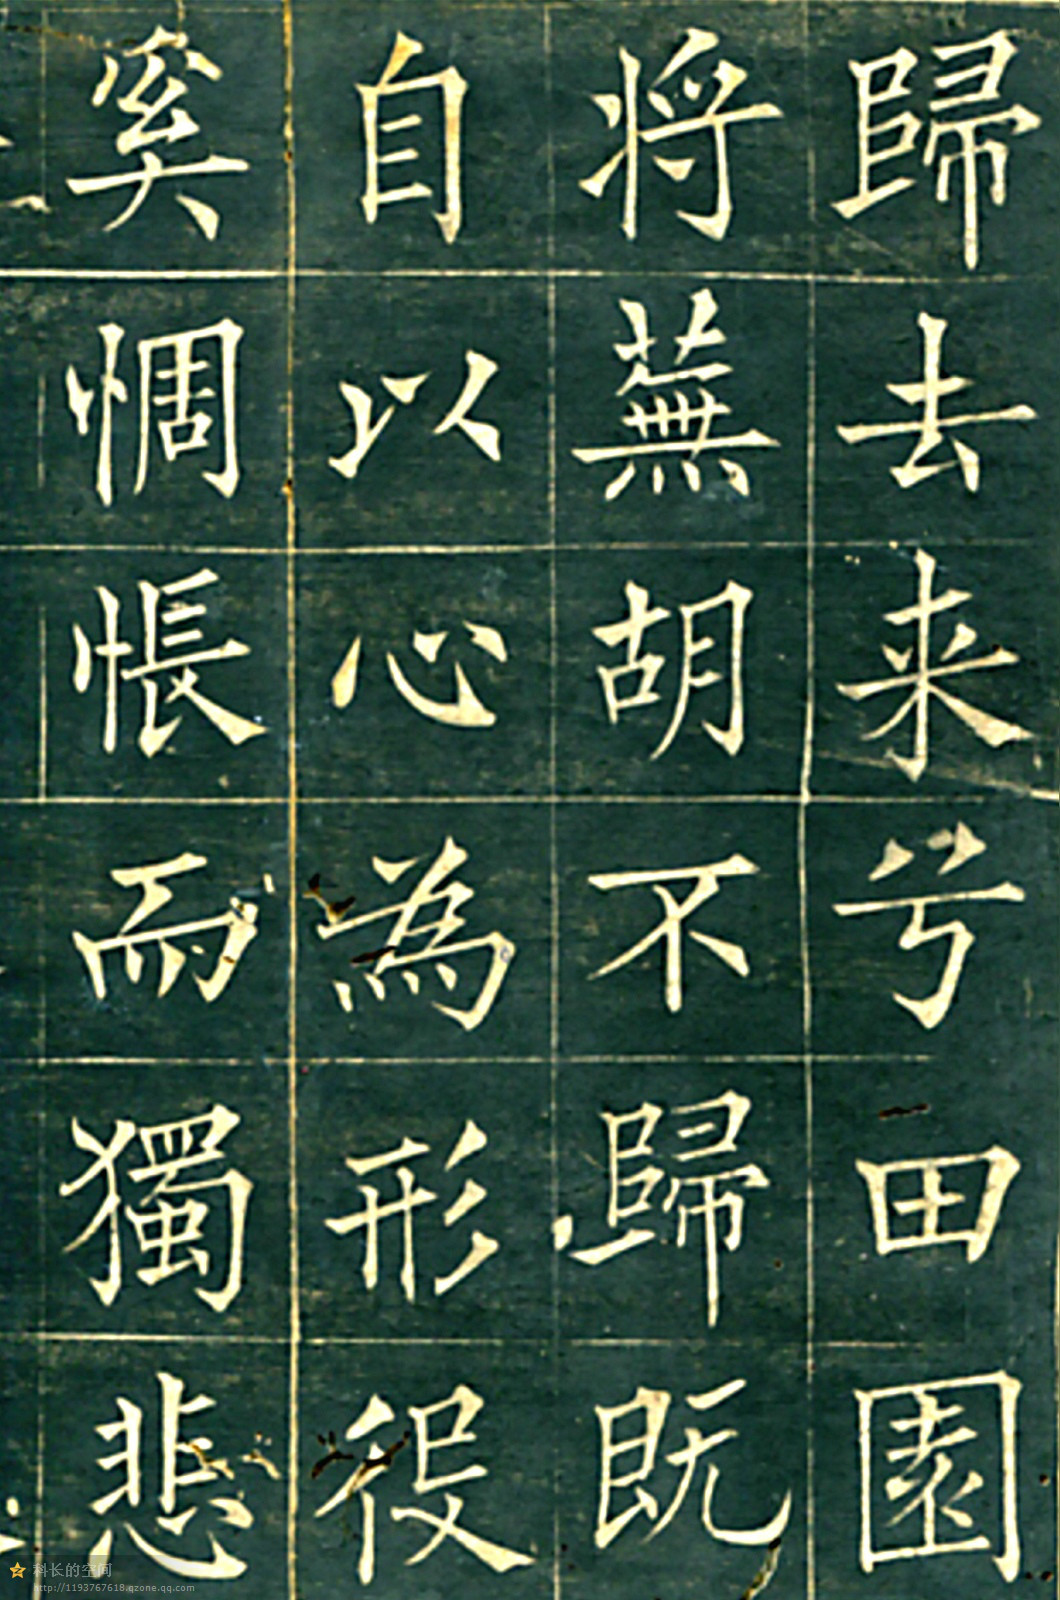 歸去来兮田園
将蕪胡不歸既
自以心為形役
奚惆悵而獨悲
科长的空间
http://1193767618.qzone.qq.com